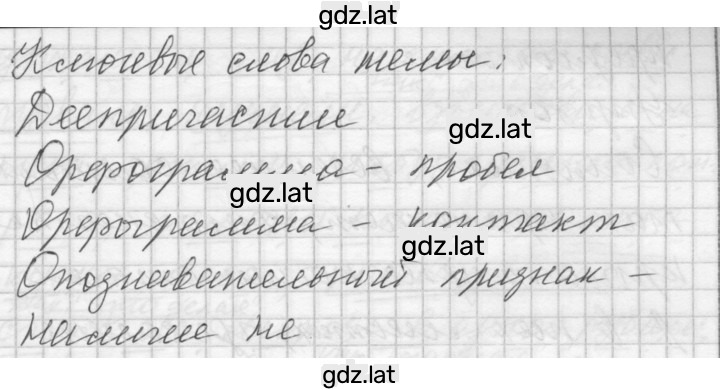 gdz.lat
Ключевые слова темы:
Деепричастие
gdz.lat
Орфограмма - пробел
gdz.lat
Орфограмма - контакт
gdz.lat
Опознавательный признак -
наличие не
gdz.lat